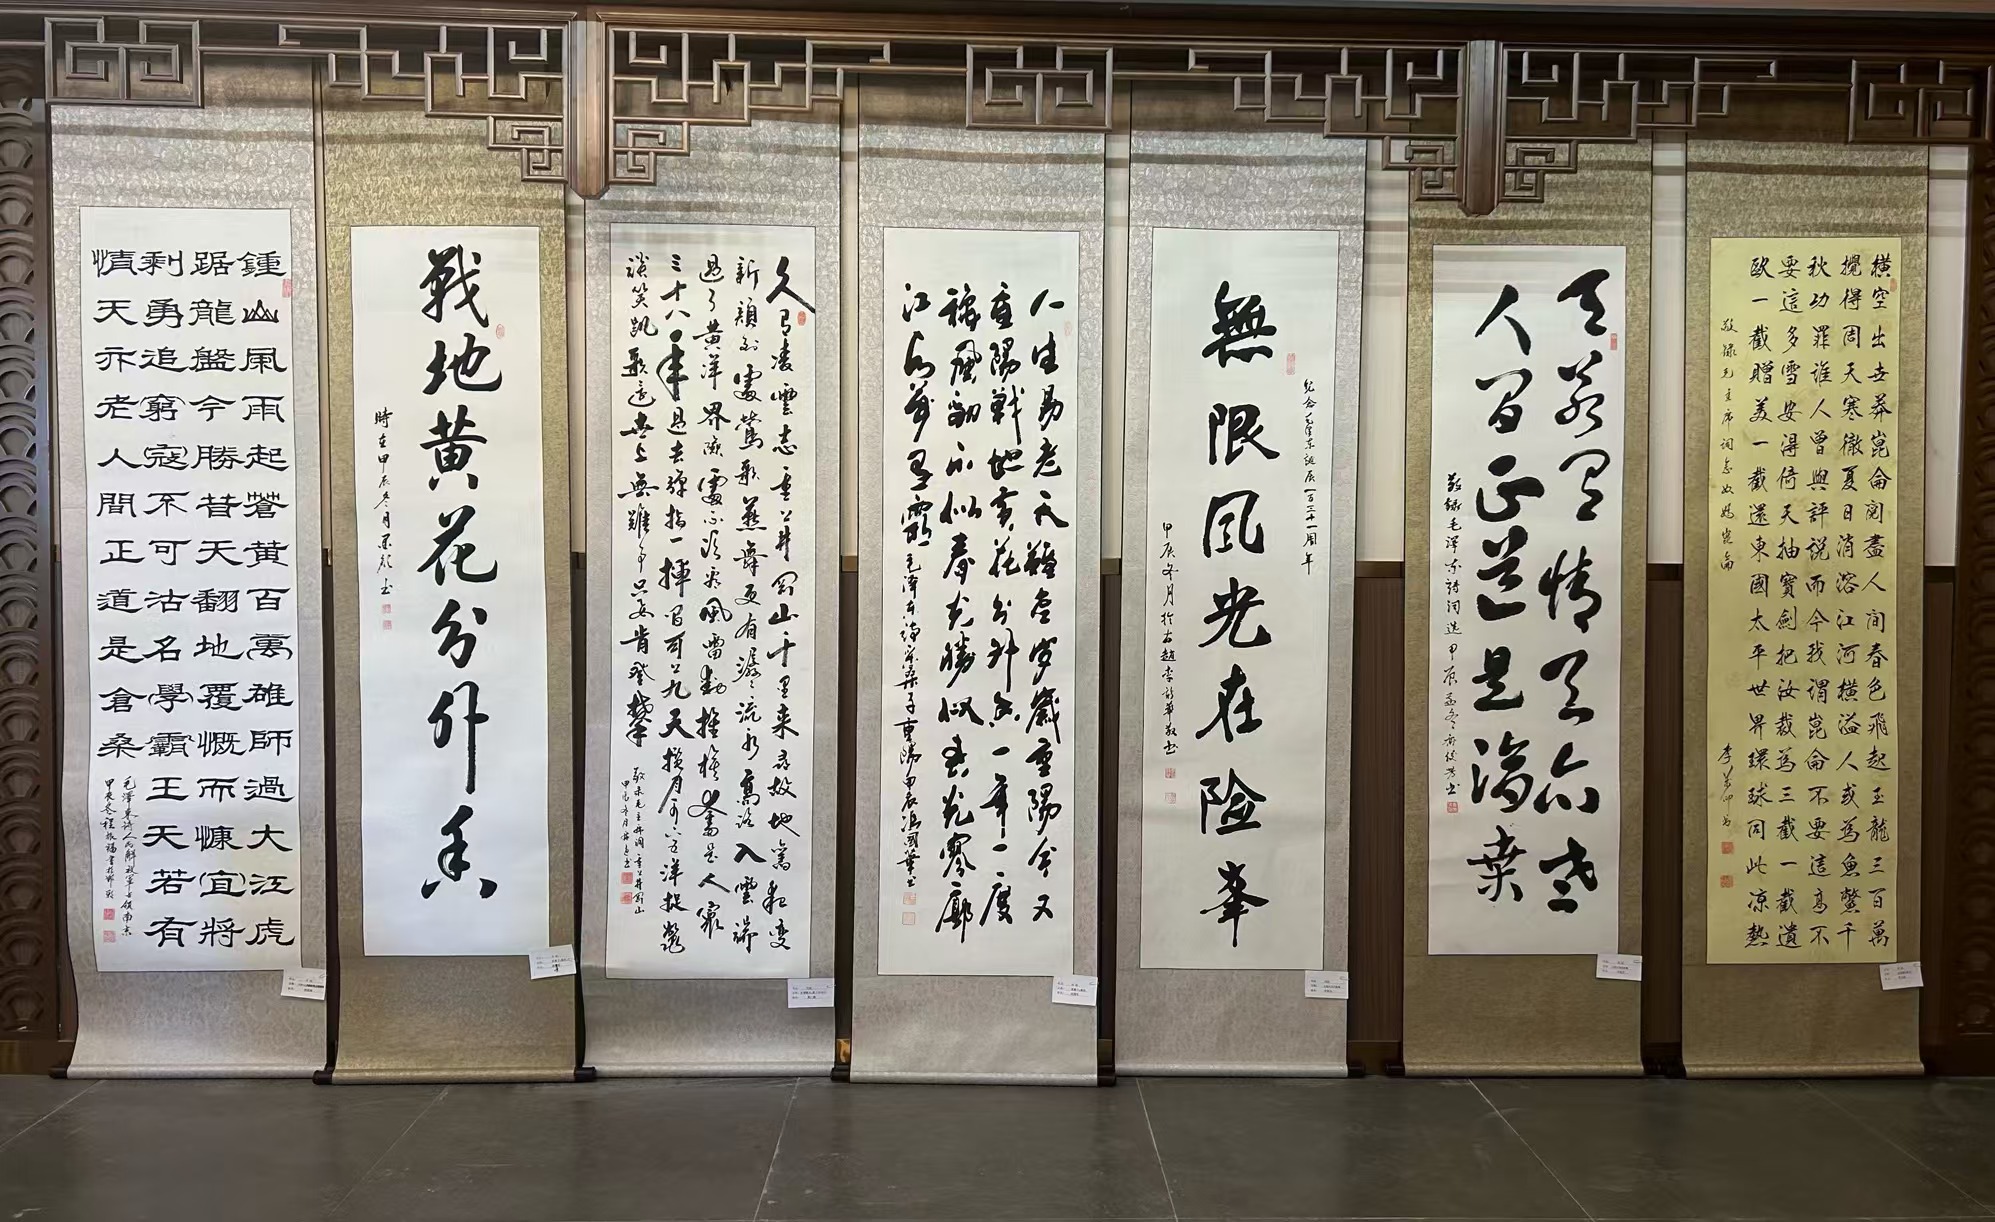 横空出世莽崑侖閱盡人间春色飛起玉龍三百萬
攪得周天寒徹夏日消溶江河横溢人或為魚鱉千
秋功罪谁人曾與評説而今我谓崑侖不要這高不
要這多雪安得倚天抽寶劍把汝裁為三截一截遺
欧一截贈美一截還東國太平世界環球同此凉熱
敬録毛主席词念奴嬌崑崙
天若有情天亦老
人间正道是滄桑
敬録毛泽东詩词选甲辰孟冬
紀念毛澤东誕辰一百三十一周年
無限风光在险峯
甲辰冬月於古趙李新華敬书
人生易老天難老岁歲重陽今又
重陽戰地黄花分外香一年一度
秋風勁不似春光勝似春光寥廓
江天萬里霜
毛泽东詩采桑子重陽甲辰冯國華书
久有凌雲志重上井冈山千里来尋故地舊貌變
新颜到處鶯歌燕舞更有潺潺流水高路入雲端
過了黄洋界險處不須看風雷動旌旗奮是人寰
三十八年過去弹指一揮间可上九天攬月可下五洋捉鳖
談笑凯歌還世上無難事只要肯登攀
戰地黄花分外香
時在甲辰冬月
鍾山風雨起蒼黄百萬雄師過大江虎
踞龍盤今勝昔天翻地覆慨而慷宜將
剩勇追窮寇不可沽名學霸王天若有
情天亦老人間正道是倉桑
毛澤东詩人民解放軍占領南京
甲辰冬程振福書於邯鄲